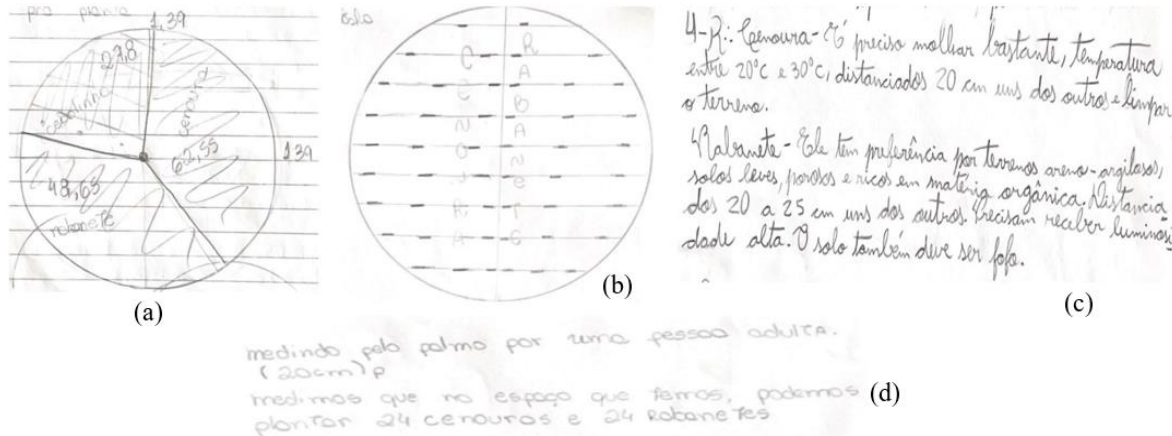 pra planta
1,39
27,8
cebolinha
cenoura
62,55
139
48,65
rabanete
(a)
CENOURA
RABANETE
(b)
4-R: Cenoura - É preciso molhar bastante, temperatura
entre 20°C e 30°C, distanciados 20 cm uns dos outros e limpar
o terreno.
Rabanete - Ele tem preferência por terrenos areno-argilosos,
solos leves, porosos e ricos em matéria orgânica. Distancia
dos 20 a 25 cm uns dos outros. Precisam receber luminosi
dade alta. O solo também deve ser fofo.
(c)
medindo pelo palmo por uma pessoa adulta.
(20cm)
medimos que no espaço que temos, podemos
plantar 24 cenouras e 24 Rabanetes
(d)